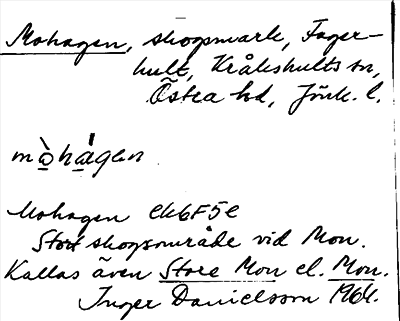 Mohagen, skogsmark, Fager-
hult, Kråkshults sn,
Östra hd, Jönk. l.
mò̲ha̲̍gen
Mohagen ek6F5e
Stort skogsområde vid Mon.
Kallas även Store Mon el. Mon.
Inger Danielsson 1964.